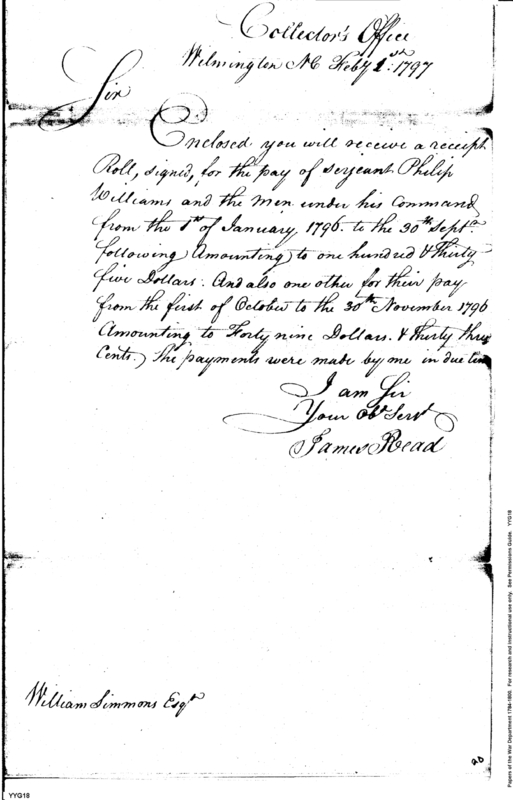 Collector's Office
Wilmington NC Feby 1st. 1797
Sir
Enclosed you will receive a receipt
Roll, signed, for the pay of serjeant Philip
Williams and the men under his Command
from the 1st of January, 1796. to the 30th Septr.
following Amounting to one hundred & Thirty
five Dollars. And also one other for their pay
from the first of October to the 30th November 1796
Amounting to Forty nine Dollars. & Thirty three
Cents. The payments were made by me in due time
I am Sir
Your Obt Servt
James Read
William Simmons Esqr
20
YYG18
Papers of the War Department 1784-1800. For research and instructional use only. See Permissions Guide. YYG18